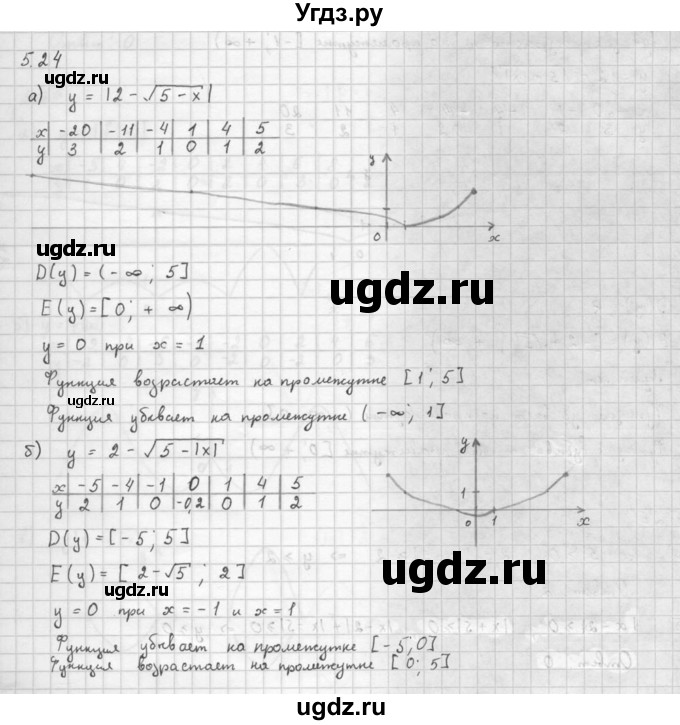 Угдз.ру
5.24
ugdz.ru
а) y = |2 - √5 - x|
x | -20 | -11 | -4 | 1 | 4 | 5
y | 3 | 2 | 1 | 0 | 1 | 2
ugdz.ru
y
0 x
ugdz.ru
D(y) = (-∞; 5]
ugdz.ru
E(y) = [0; +∞)
y = 0 при x = 1
Функция возрастает на промежутке [1; 5]
ugdz.ru
Функция убывает на промежутке (-∞; 1]
б) y = 2 - √5 - |x|
ugdz.ru
x | -5 | -4 | -1 | 0 | 1 | 4 | 5
y | 2 | 1 | 0 | -0,2 | 0 | 1 | 2
y
1
0 1 x
D(y) = [-5; 5]
E(y) = [2 - √5; 2]
ugdz.ru
ugdz.ru
y = 0 при x = -1 и x = 1
Функция убывает на промежутке [-5; 0]
Функция возрастает на промежутке [0; 5]
ugdz.ru
ugdz.ru